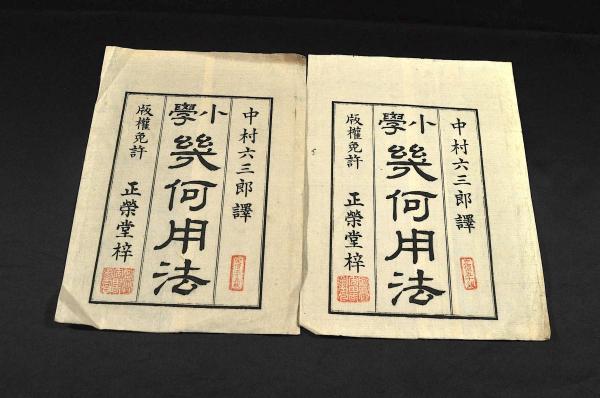 中村六三郎譯
小學
幾何用法
版權免許
正榮堂梓
中村六三郎譯
小學
幾何用法
版權免許
正榮堂梓